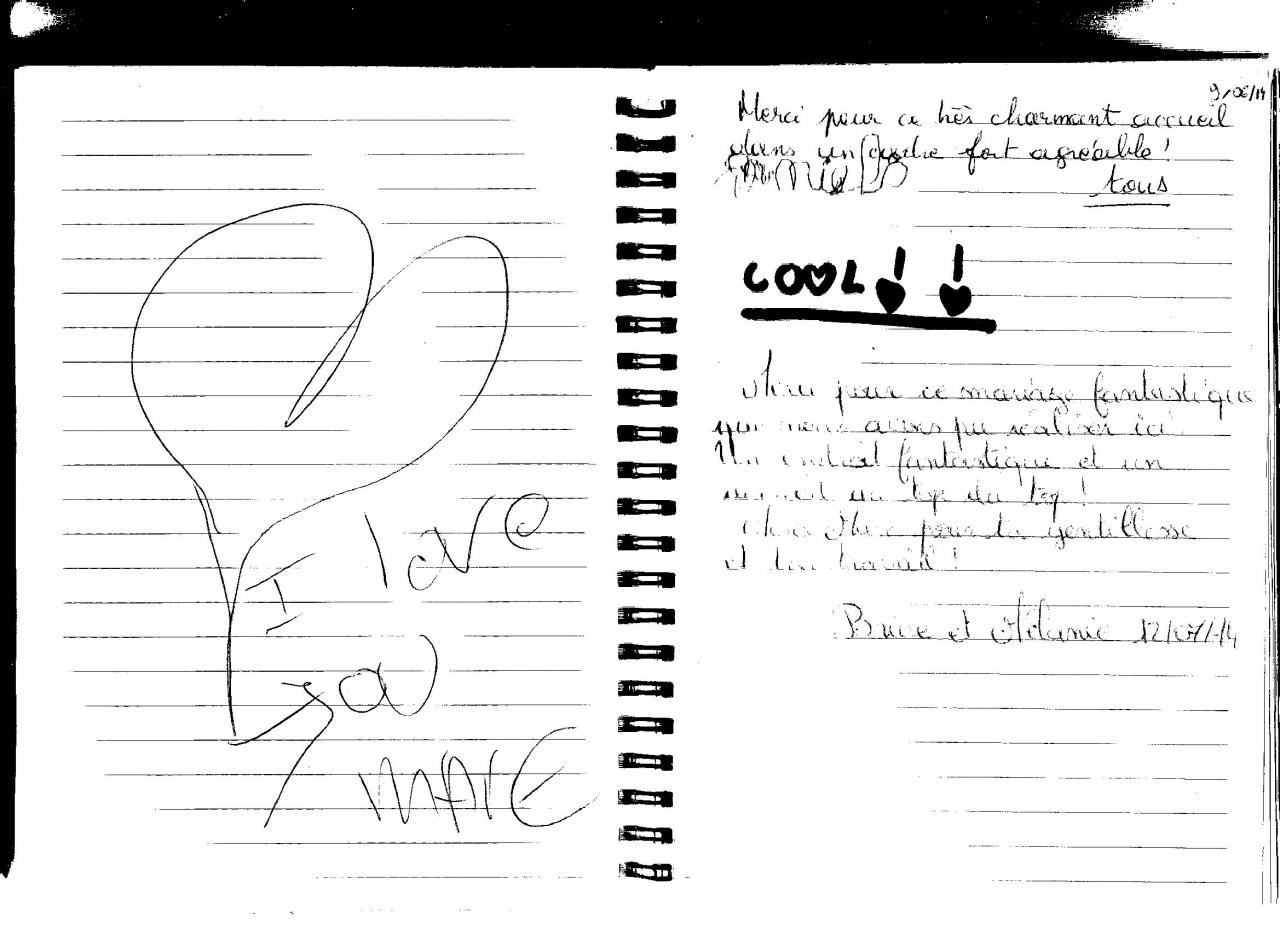 I love
you
MARC
9/06/14
Merci pour ce très charmant accueil
dans un cadre fort agréable !
tous
COOL ! !
Merci pour ce mariage fantastique
que nous avons pu réaliser ici.
Un endroit fantastique et un
accueil au top du top !
Marc pour ta gentillesse
et ton travail !
Brice et Mélanie 12/07/14